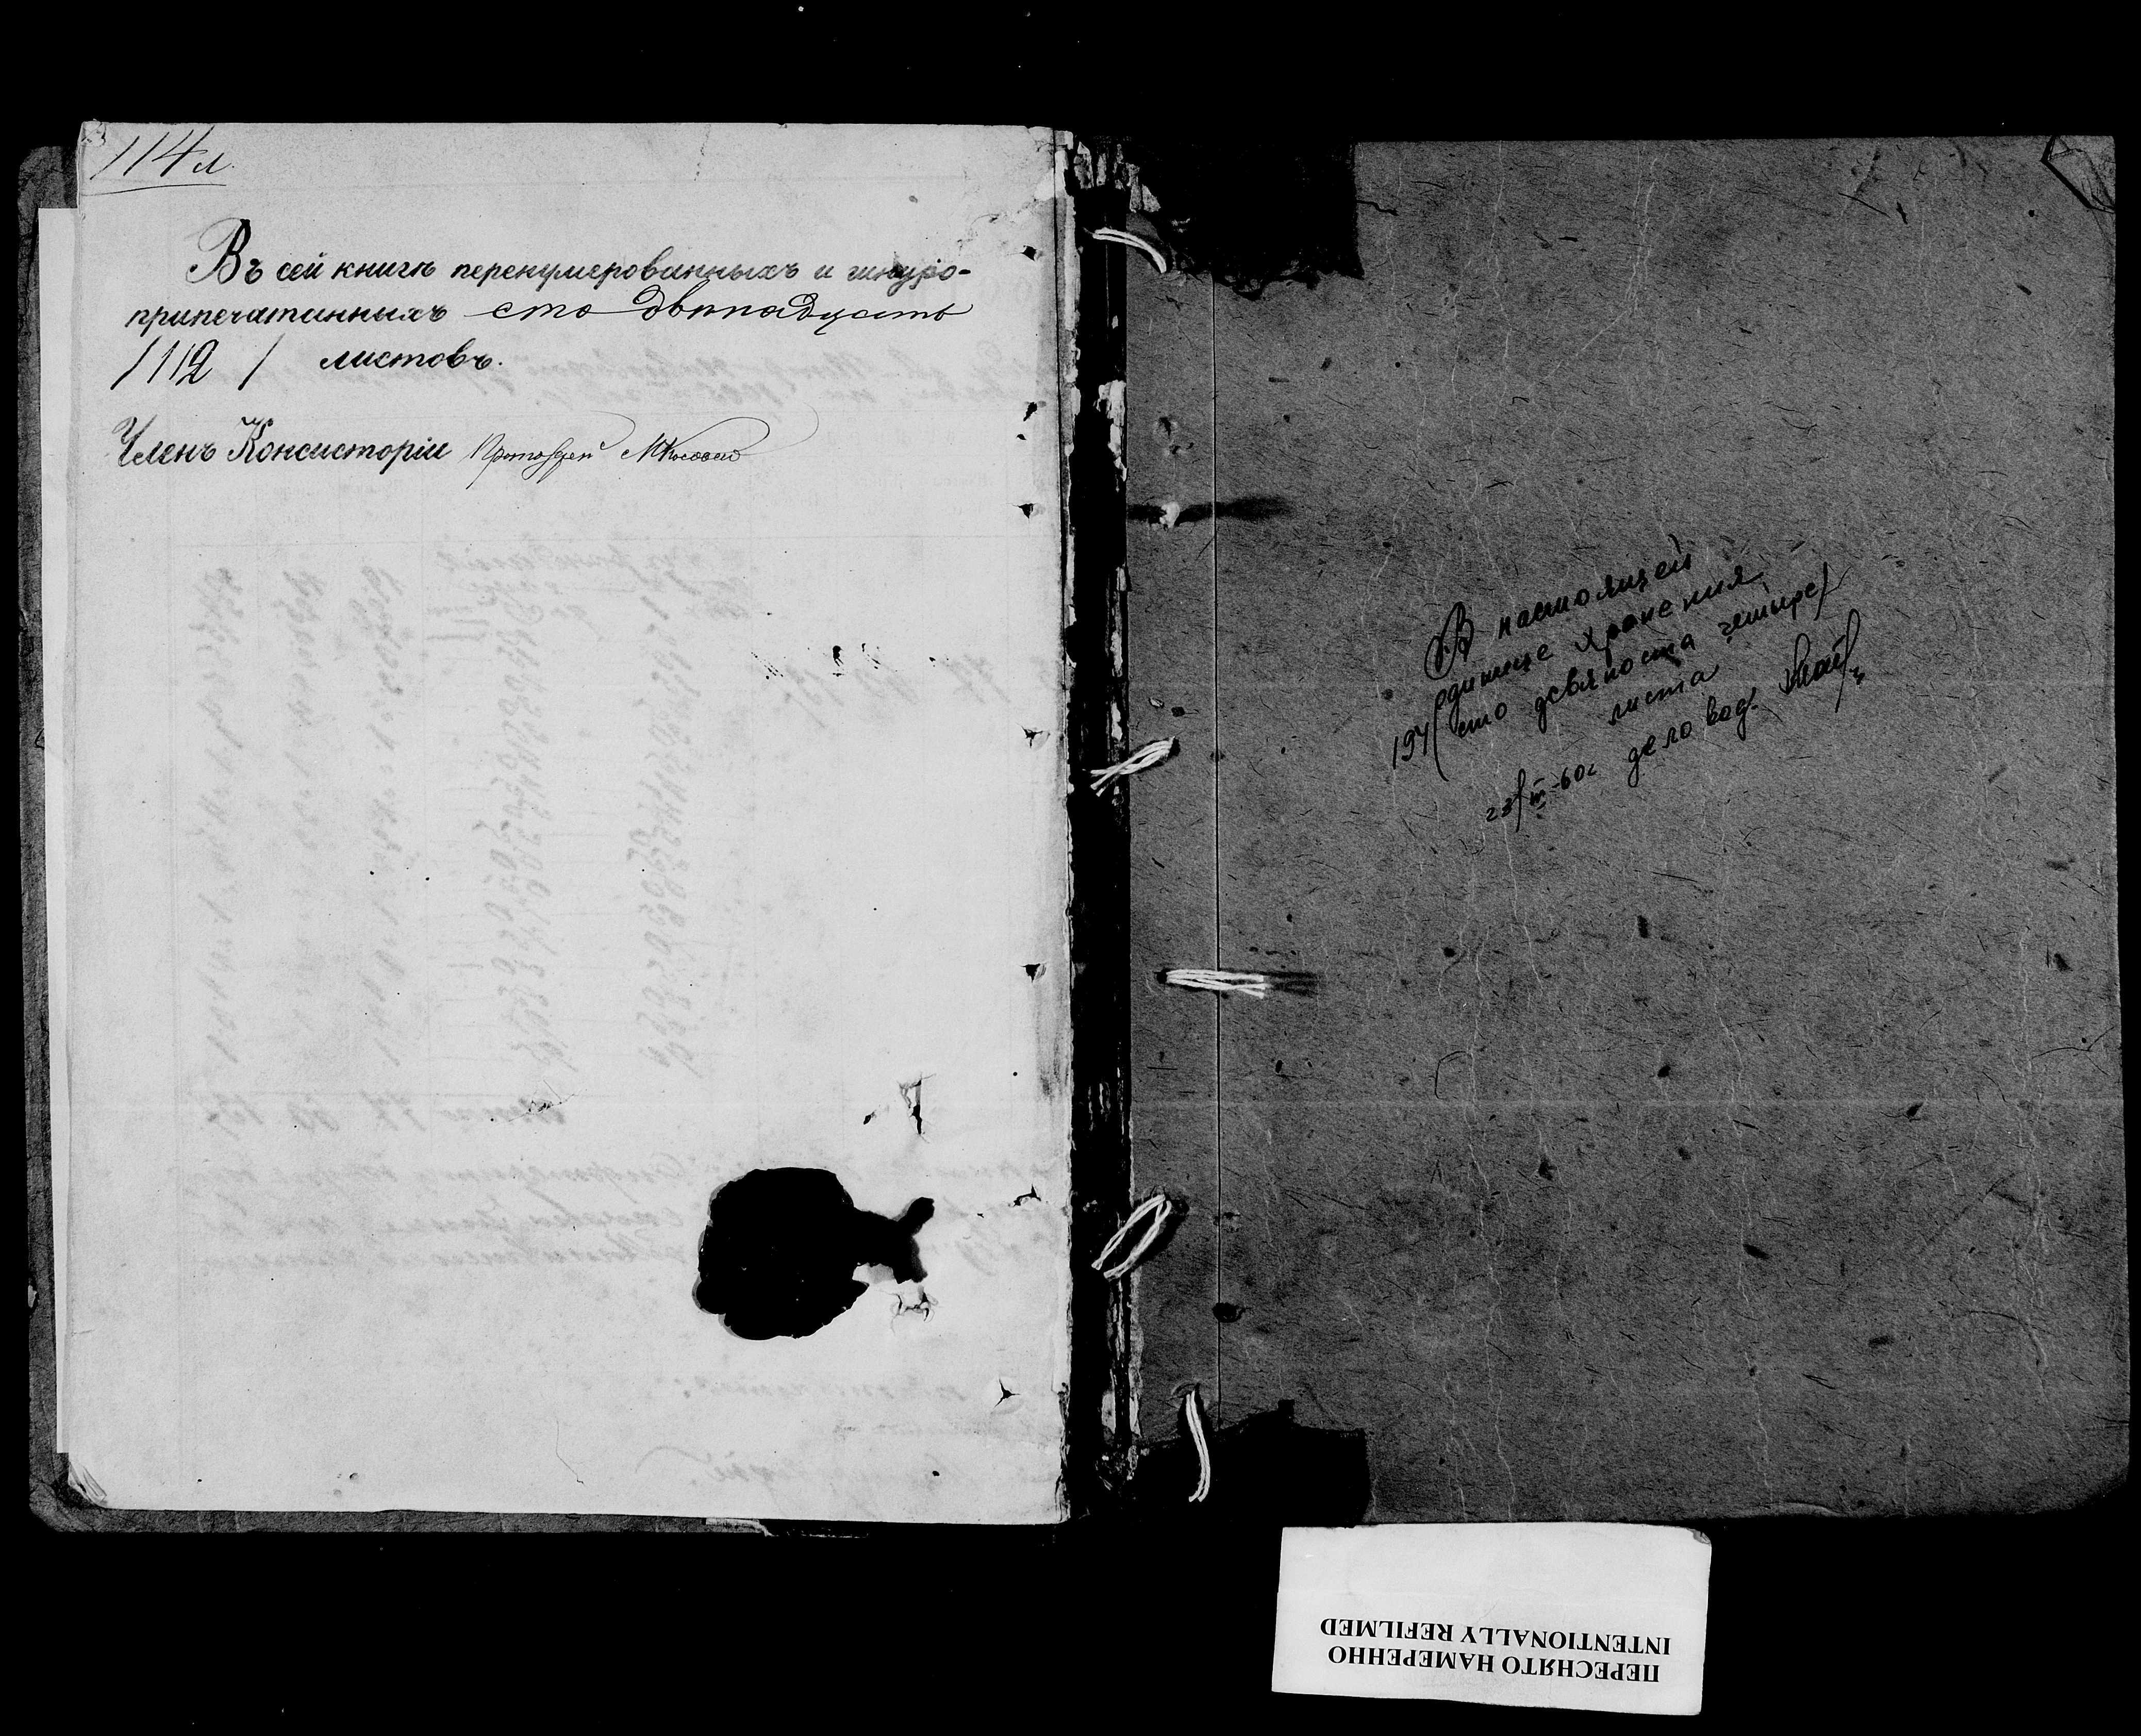 114 л.
Въ сей книгѣ перенумерованныхъ и шнуро-
припечатанныхъ сто двѣнадцать
/112/ листовъ.
Членъ Консисторіи Протоіерей
В настоящей
единице хранения
194 (сто девяноста четыре)
листа
23/III-60г деловод.
ПЕРЕСНЯТО НАМЕРЕННО
INTENTIONALLY REFILMED